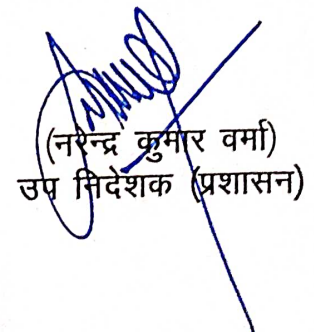 (नरेन्द्र कुमार वर्मा)
उप निदेशक (प्रशासन)